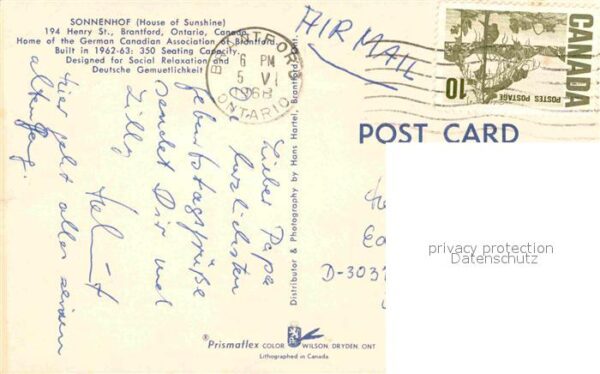 SONNENHOF (House of Sunshine)
194 Henry St., Brantford, Ontario, Canada
Home of the German Canadian Association of Brantford.
Built in 1962-63: 350 Seating Capacity.
Designed for Social Relaxation and
Deutsche Gemuetlichkeit
BRANTFORD
6 PM
5 VI
1968
ONTARIO
AIR MAIL
CANADA
10
POSTES POSTAGE
POST CARD
Lieber Papa
herzlichsten
Geburtstagsgrüße
sendet Dir und
Lilly
Helmut
Hier geht alles seinen
alten Gang.
Distributor & Photography by Hans Hartel, Brantford, Ont.
D-303
privacy protection
Datenschutz
®Prismaflex COLOR WILSON, DRYDEN, ONT
Lithographed in Canada